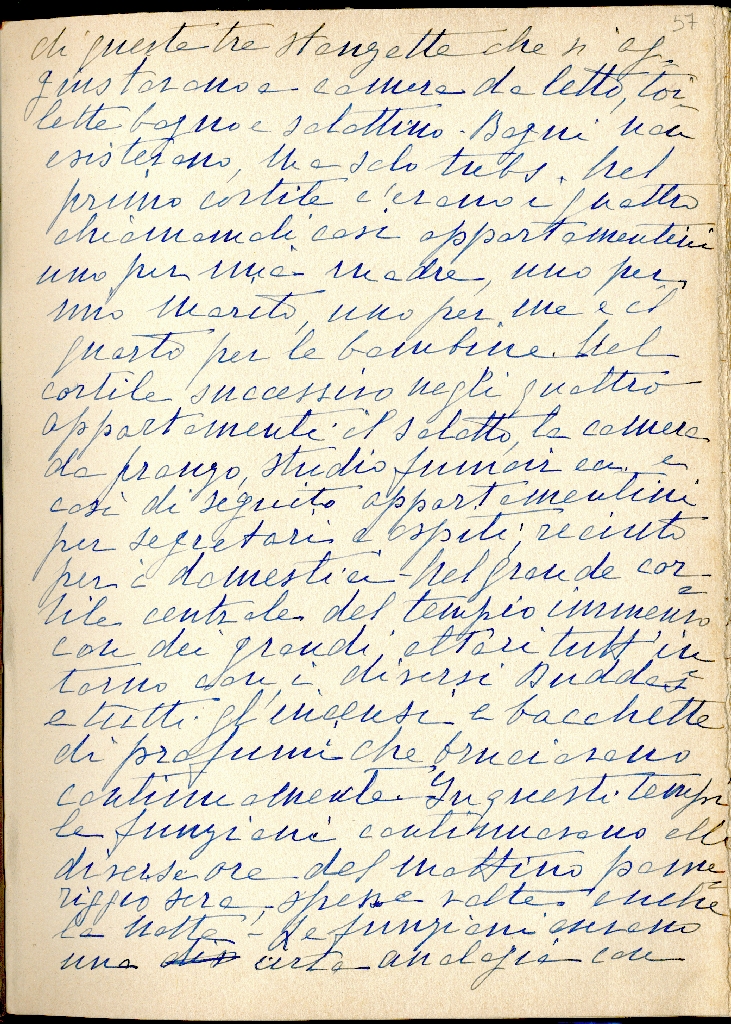 57
di queste tre stanzette che si ag-
giustavano a camera da letto, toi-
lette bagno e salottino. Bagni non
esistevano, ma solo tubs. Nel
primo cortile c'erano i quattro
chiamamoli così appartamentini
uno per mia madre, uno per
mio marito, uno per me e il
quarto per le bambine. Nel
cortile successivo negli quattro
appartamenti il salotto, la camera
da pranzo, studio, fumoir ecc. e
così di seguito appartamentini
per segretari e ospiti; recinto
per i domestici - Nel grande cor-
tile centrale del tempio immenso
con dei grandi altari tutt'in
torno con i diversi Buddas
e tutti gl'incensi e bacchette
di profumi che bruciavano
continuamente. In questi tempi
le funzioni continuavano alle
diverse ore del mattino pome-
riggio sera, spesse volte anche
la notte - Le funzioni avevano
una certa analogia con